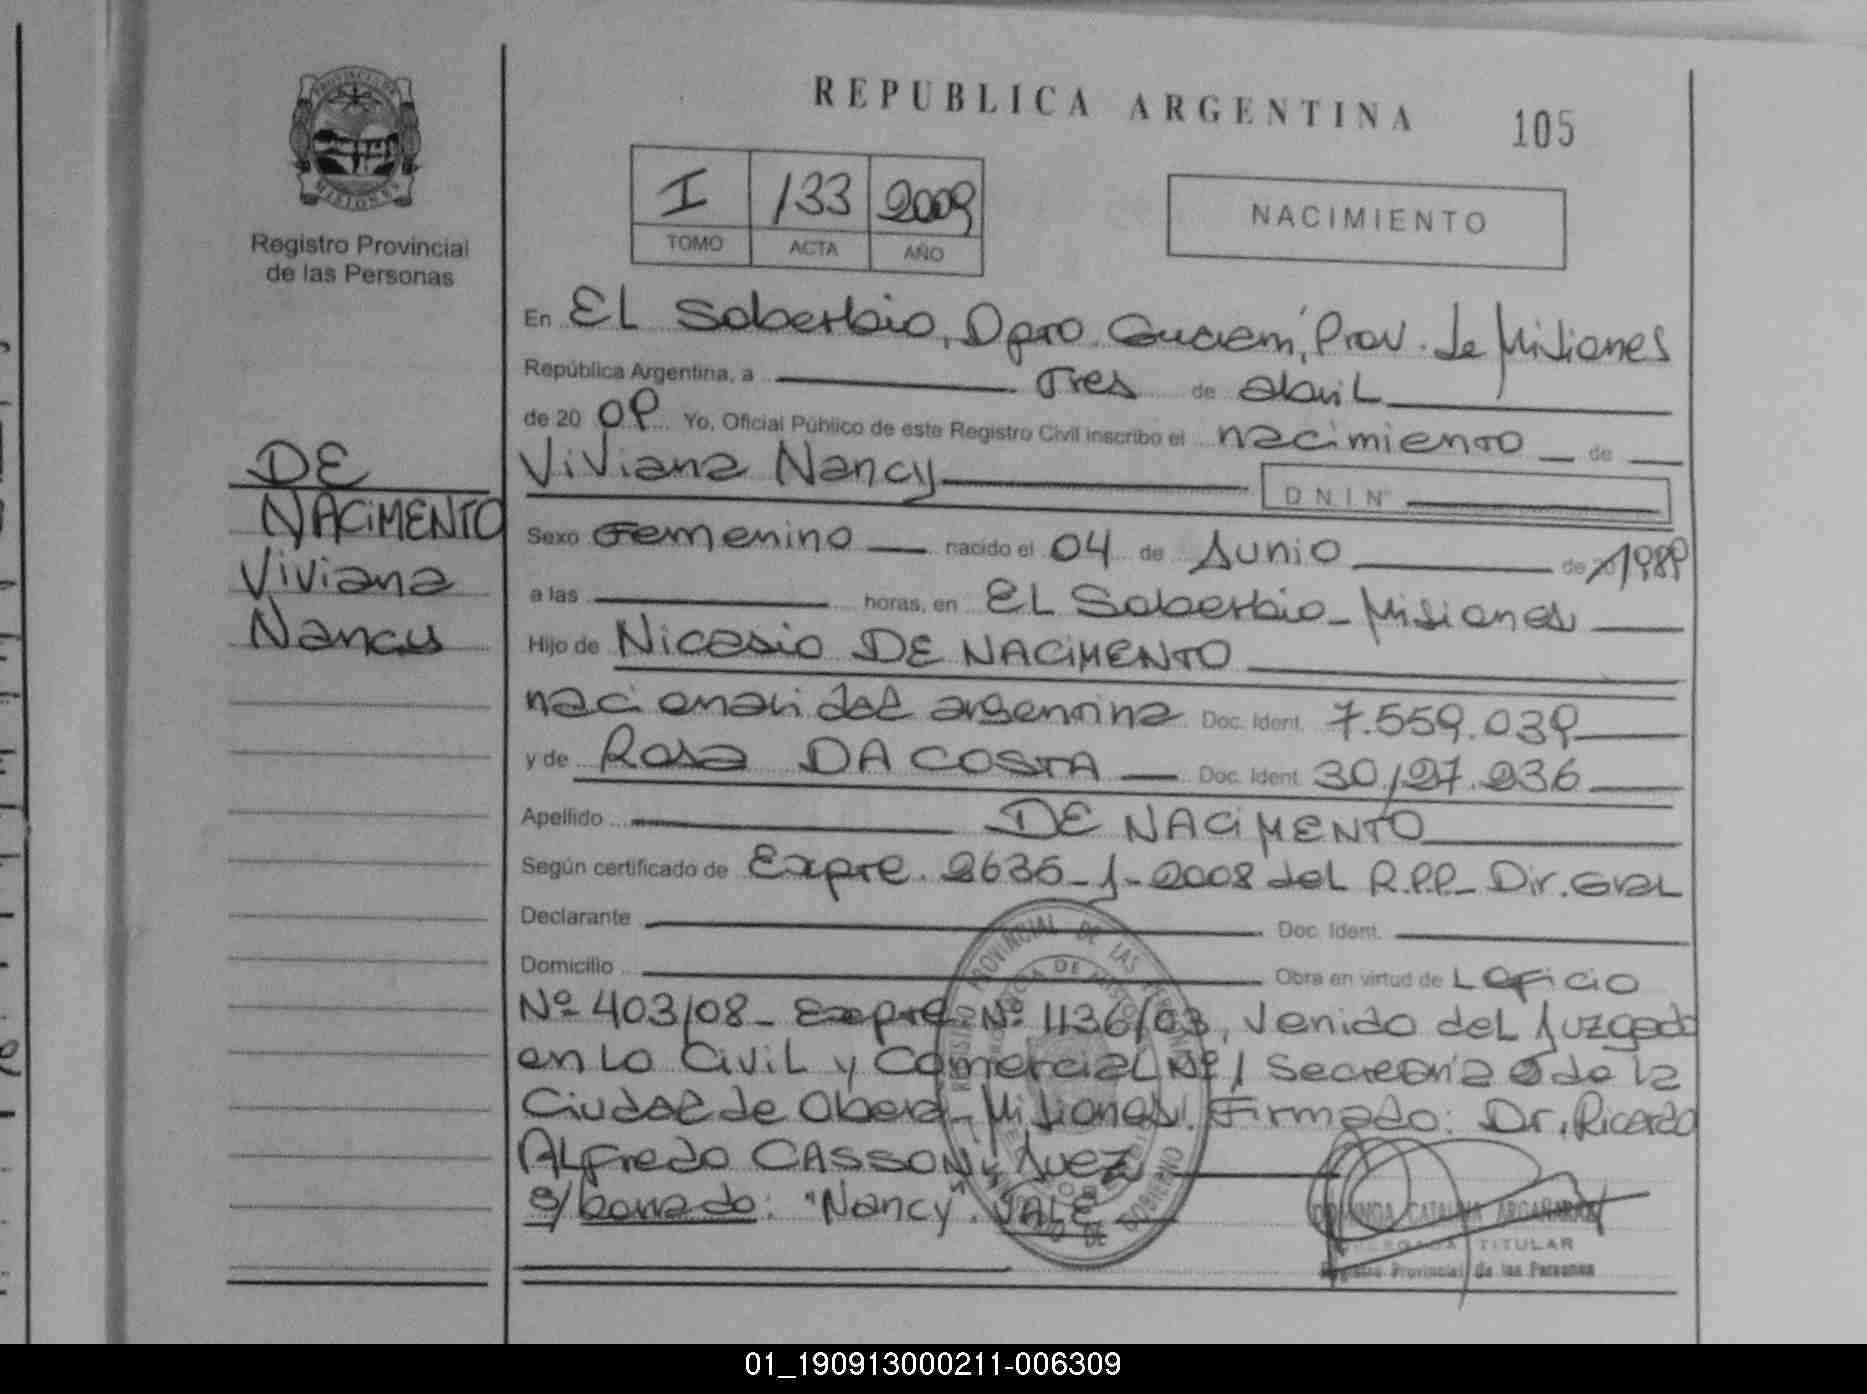 REPUBLICA ARGENTINA
105
PROVINCIA DE
MISIONES
Registro Provincial
de las Personas
I 133 2009
TOMO ACTA AÑO
NACIMIENTO
En EL Soberbio, Dpto. Guaraní, Prov. de Misiones
República Argentina, a Tres de abril
de 20 09 Yo, Oficial Público de este Registro Civil inscribo el nacimiento de
Viviana Nancy D.N.I.Nº
DE
NACiMENTO
Viviana
Nancy
Sexo Femenino nacido el 04 de Junio de 20 1989
a las horas, en EL Soberbio - Misiones
Hijo de Nicasio DE NACiMENTO
nacionalidad argentina Doc. Ident. 7.559.039
y de Rosa DA COSTA Doc. Ident. 30.127.236
Apellido DE NACiMENTO
Según certificado de Expte. 2635-J-2008 del R.P.P- Dir. Gral
Declarante Doc. Ident.
Domicilio Obra en virtud de L oficio
Nº 403/08 - Expte Nº 1136/03, venido del Juzgado
en Lo Civil y Comercial Nº 1 Secretaría de la
Ciudad de Obera - Misiones. Firmado: Dr. Ricardo
ALfredo CASSONI Juez
s/borrado: "Nancy". VALE
CATALINA
TITULAR
Registro Provincial de las Personas
PROVINCIAL DE LAS
DE GOBIERNO
01_190913000211-006309